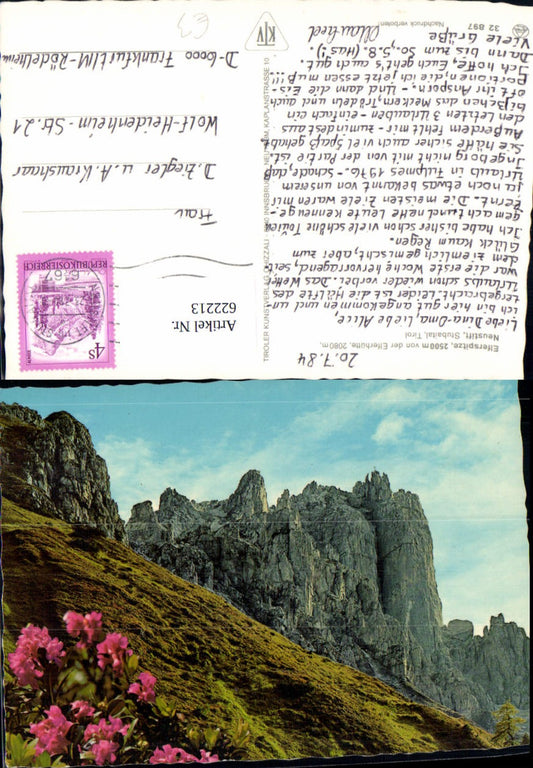 Elferspitze, 2500m von der Elferhütte, 2080m,
Neustift, Stubaital, Tirol
20.7.84
Liebe Dina-Oma, Liebe Alice,
ich bin hier gut angekommen und un-
tergebracht. Leider ist die Hälfte des
Urlaubs schon wieder vorbei. Das Wetter
war die erste Woche hervorragend, seit-
dem ziemlich gemischt, aber, zum
Glück kaum Regen.
Ich habe bisher schon viele schöne Touren
gemacht und nette Leute kennenge-
lernt. Die meisten Ziele waren mir
ja noch etwas bekannt von unserem
Urlaub in Fulpmes 1976.- schade, daß
Ingeborg nicht mit von der Partie ist.
Sie hätte sicher auch viel Spaß gehabt.
Außerdem fehlt mir - zumindest aus
den letzten 3 Urlauben - einfach ein
bißchen das Meckern, Trödeln und auch
oft ihr Ansporn. - Und dann die Eis-
Portionen, die ich jetzt essen muß!!!
Ich hoffe, Euch geht's auch gut.
Dann bis zum So., 5.8. (Has!).
Viele Grüße
Manfred
32 897
Nachdruck verboten
KTV
TIROLER KUNSTVERLAG CHIZZALI INNSBRUCK-NEURUM, KAPLANSTRASSE 10
Artikel Nr.
622213
REPUBLIK ÖSTERREICH
4S
Frau
D. Ziegler u. A. Kraushaar
Wolf-Heidenheim-Str. 21
D-6000 Frankfurt/M-Rödelheim